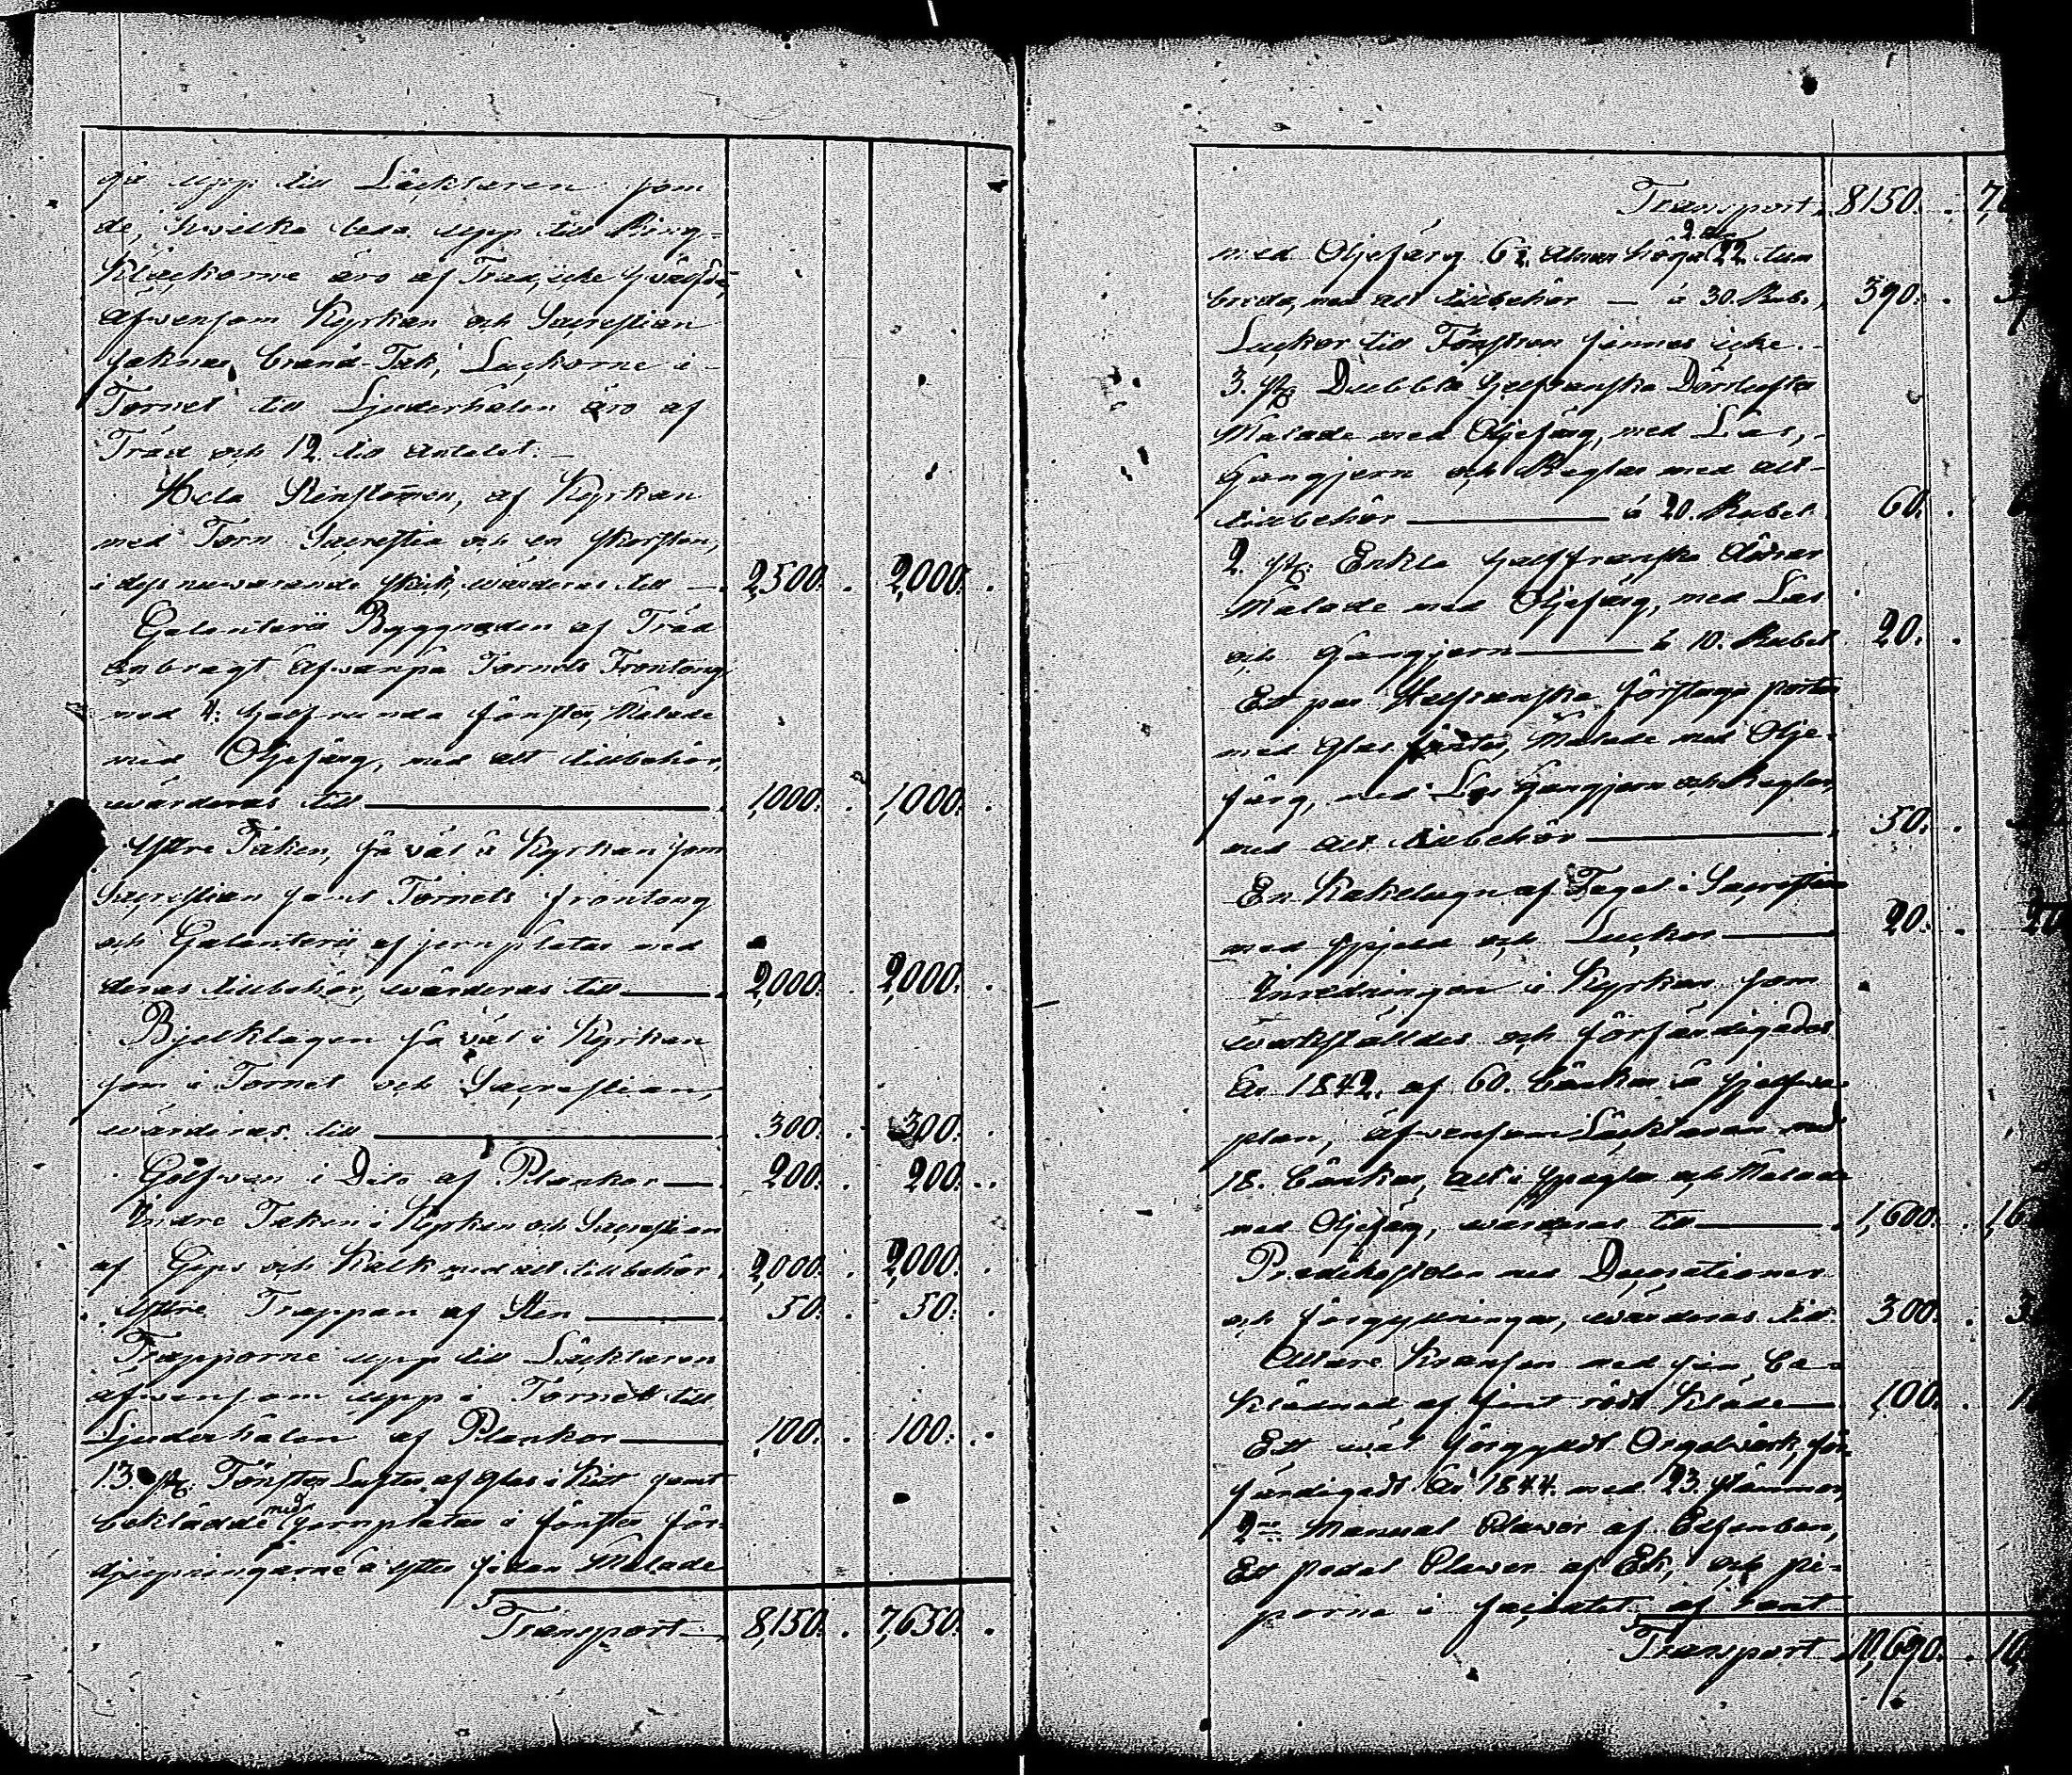 gå upp till Läcktaren som
de, hwilka leda upp till Ring-
Klockorne äro af Träd, icke hwälfde,
äfwensom Kyrkan och Sacrestian
saknar brand-Tak, Luckorne i
Tornet till Ljuderhålen äro af
Träd och 12. till antalet. —
Hela Stenstommen, af Kyrkan
med Torn Sacrestia och en skorsten,
i dess nuwarande skick, wärderas till — 2,500. 2,000.
Galanterii Byggnaden af Träd
anbragt åfwanpå Tornets Frontong
med 4. halfrunda fönster, Målade
med Oljefärg, med alt tillbehör,
wärderas till 1,000. 1,000.
Yttre Taken, så väl å Kyrkan som
Sacrestian samt Tornets frontong
och Galanterii af jernplåtar med
deras tillbehör, wärderas till 2,000. 2,000.
Bjelklagen så väl i Kyrkan
som i Tornet och Sacrestian,
wärderas till 300. 300.
Golfwen i Dito af Plankor 200. 200.
Indre Taken i Kyrkan och Sacrestian
af Gips och Kalk med alt tillbehör 2,000. 2,000.
Yttre Trappan af Sten 50. 50.
Trapporne upp till Läcktaren
äfwensom upp i Tornet till
Ljuderhålen af Plankor 100. 100.
13. st. Fönster Lufter af glas i Kitt samt
beklädde med jernplåtar i fönster för-
djupningarne å yttre sidan Målade
Transport 8,150. 7,650.
Transport 8150.
med Oljefärg 6½ Alnar höga 2 al 22 tum
breda, med alt tillbehör — à 30. Rub. 390.
Luckor till Fönstren finnas icke.
3. st. Dubbla halffranska Dörrlufter
Målade med Oljefärg, med Lås,
Gångjern och Reglar med alt
tillbehör à 20. Rubel 60.
2. st. Enkla halffranska dörrar
Målade med Oljefärg, med Lås
och Gångjern à 10. Rubel 20.
Ett par Halfranska förstuga portar
med glas, Målade med Olje-
färg, med Lås Gångjern och Reglar,
med alt tillbehör 50.
En Kakelugn af Tegel i Sacrestian
med spjeld och Luckor 20. 20
Inredningen i Kyrkan som
werkställdes och förfärdigades
År 1842. af 60. bänkar å sjelfwa
plan, äfwensom Läcktaren med
18. bänkar, alt i speglar och Målade
med Oljefärg, wärderas till 1,600.
Predikostolen med Decorationer
och förgyllningar, wärderas till 300.
Altare Kransen med sin be-
klädnad af fint rödt Kläde 100.
Ett wäl förgyldt Orgelwerk, för-
färdigadt År 1844. med 23. stämmor,
2ne Manual Claver af Elfenben,
Ett pedal Claver af Ek, och pi-
porne i façaden af tent
Transport 10,690.